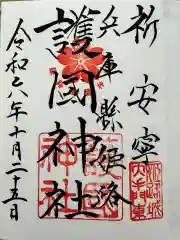 祈安寧
兵庫縣姫路
護國神社
令和六年十月二十五日